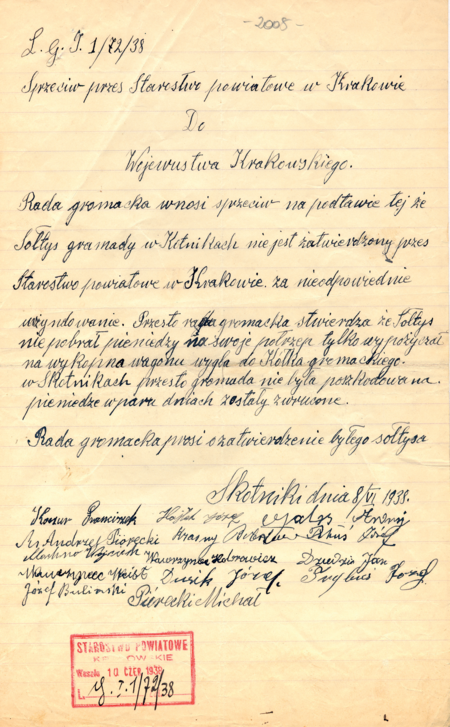 -2008-
L. G. I. 1/72/38
Sprzeciw przes Starostwo powiatowe w Krakowie
Do
Wojewustwa Krakowskiego.
Rada gromacka wnosi sprzeciw na podstawie tej że
Sołtys gramady w Kotnikach nie jest zatwierdzony przes
Starostwo powiatowe w Krakowie za nieodpowiednie
użyndowanie. Przesto rada gromacka stwierdza że Sołtys
nie pobrał pieniędzy na swoje potrzep tylko wypożyczał
na wykopna wagonu wygla do Kółka gromackiego.
w Skotnikach przesto gromada nie była poszkodowana.
pieniedze wparu dniach zostały zwrucone.
Rada gromacka prosi o zatwierdzenie byłego sołtysa
Skotniki dnia 8/VI 1938.
Franciszek Józef Andrzej
Andrzej Piórecki Krasny Józef
Wojciech Wawrzyniec Dziedzic Jan
Wawrzyniec Duzik Józef Trybuś Józef
Józef Buliński
Piórecki Michał
STAROSTWO POWIATOWE
KRAKOWSKIE
Wpłynęło 10 CZER. 1938
L. G. I. 1/72/38